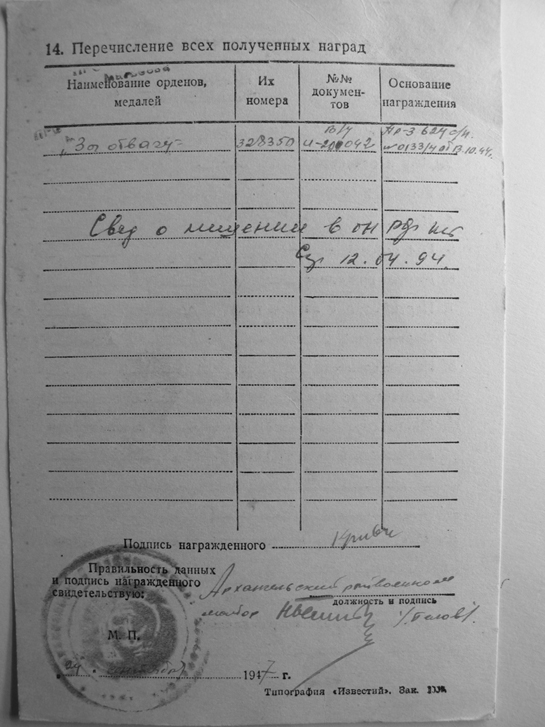 14. Перечисление всех полученных наград
Наименование орденов, медалей
Их номера
№№ документов
Основание награждения
„За отвагу"
328350
В/у
Пр-з
от 13.10.44г.
Свед о лишении в он рф нет
12.04.94.
Подпись награжденного
Правильность данных
и подпись награжденного
свидетельствую:
Архангельский райвоенком
должность и подпись
майор
М. П.
1947 г.
Типография «Известий». Зак.